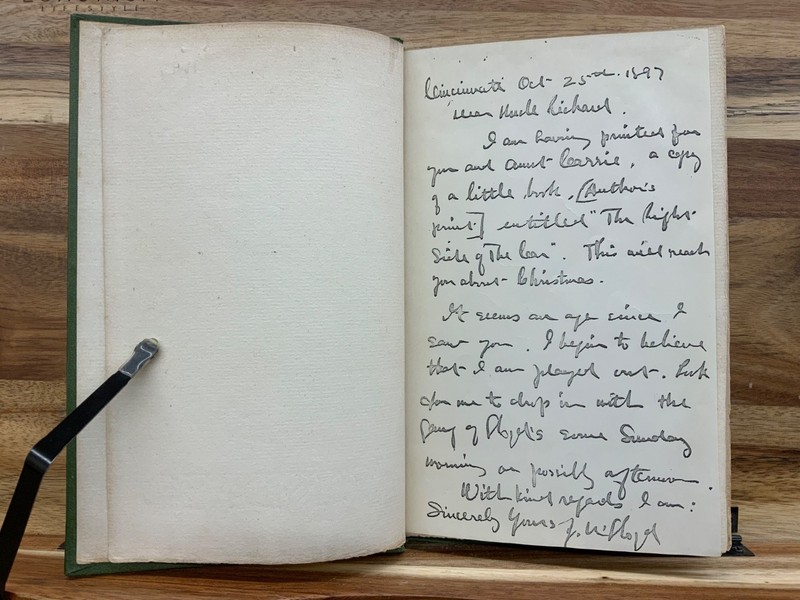 LIFESTYLE
Cincinnati Oct 25th. 1897
Dear Uncle Richard.
I am having printed for
you and Aunt Carrie, a copy
of a little book, [Author's
print] entitled "The Right
Side of The Car". This will reach
you about Christmas.
It seems an age since I
saw you. I begin to believe
that I am played out. Look
for me to drop in with the
gang of Lloyd's some Sunday
morning or possibly afternoon.
With kind regards I am:
Sincerely Yours J. U. Lloyd